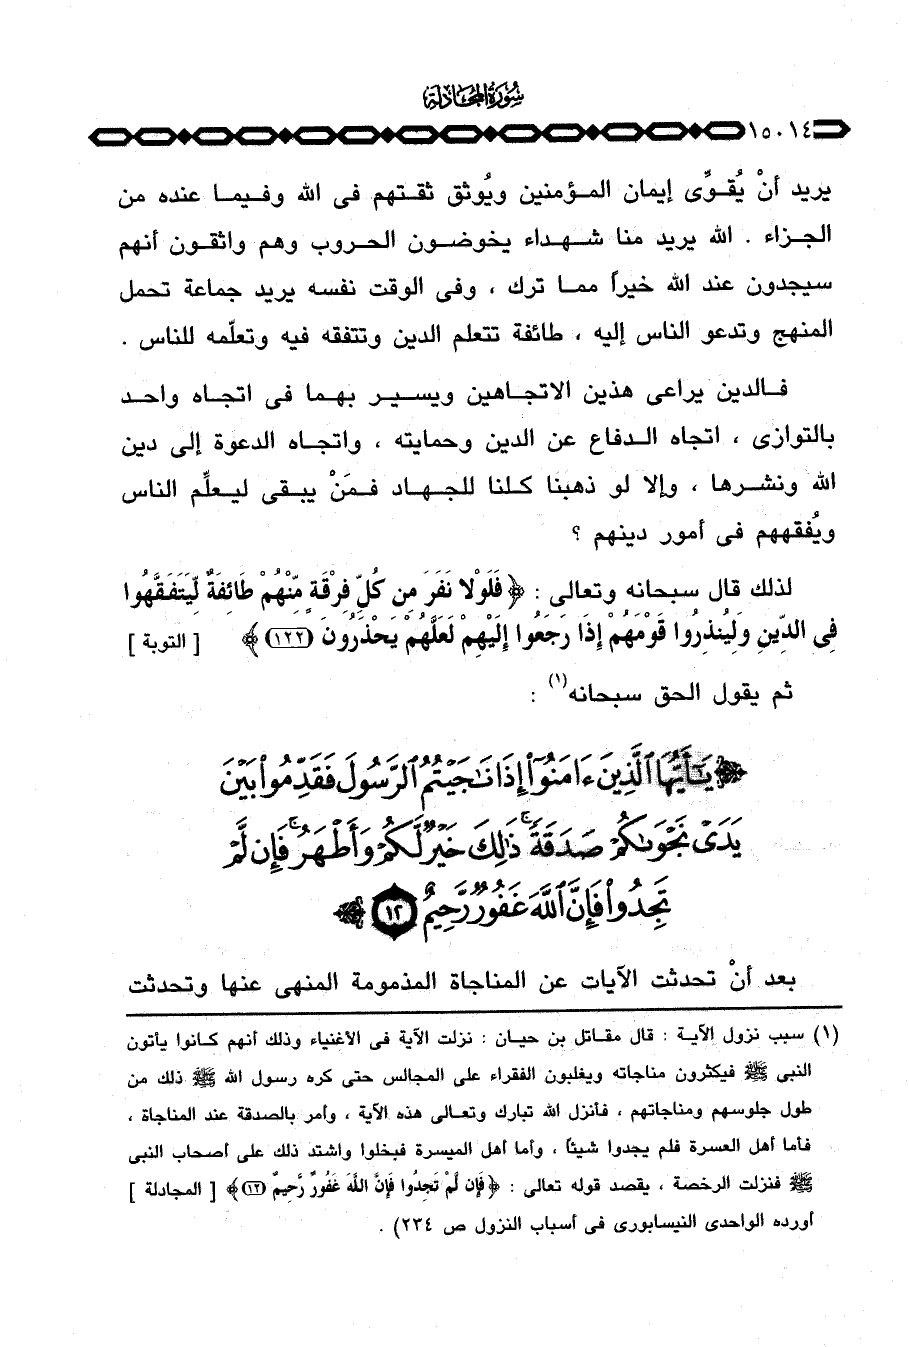 سورة المجادلة
١٥٠١٤
يريد أنْ يُقوِّى إيمان المؤمنين ويُوثق ثقتهم فى الله وفيما عنده من
الجزاء . الله يريد منا شهداء يخوضون الحروب وهم واثقون أنهم
سيجدون عند الله خيراً مما ترك ، وفى الوقت نفسه يريد جماعة تحمل
المنهج وتدعو الناس إليه ، طائفة تتعلم الدين وتتفقه فيه وتعلّمه للناس .
فالدين يراعى هذين الاتجاهين ويسير بهما فى اتجاه واحد
بالتوازى ، اتجاه الدفاع عن الدين وحمايته ، واتجاه الدعوة إلى دين
الله ونشرها ، وإلا لو ذهبنا كلنا للجهاد فمَنْ يبقى ليعلِّم الناس
ويُفقههم فى أمور دينهم ؟
لذلك قال سبحانه وتعالى : ﴿ فَلَوْلا نَفَرَ مِن كُلِّ فِرْقَةٍ مِّنْهُمْ طَائِفَةٌ لِّيَتَفَقَّهُوا
فِى الدِّينِ وَلِيُنذِرُوا قَوْمَهُمْ إِذَا رَجَعُوا إِلَيْهِمْ لَعَلَّهُمْ يَحْذَرُونَ (١٢٢) ﴾ [ التوبة ]
ثم يقول الحق سبحانه(١) :
﴿ يَٰٓأَيُّهَا ٱلَّذِينَ ءَامَنُوٓا۟ إِذَا نَٰجَيْتُمُ ٱلرَّسُولَ فَقَدِّمُوا۟ بَيْنَ
يَدَىْ نَجْوَىٰكُمْ صَدَقَةً ۚ ذَٰلِكَ خَيْرٌ لَّكُمْ وَأَطْهَرُ ۚ فَإِن لَّمْ
تَجِدُوا۟ فَإِنَّ ٱللَّهَ غَفُورٌ رَّحِيمٌ ١٢ ﴾
بعد أنْ تحدثت الآيات عن المناجاة المذمومة المنهى عنها وتحدثت
(١) سبب نزول الآية : قال مقاتل بن حيان : نزلت الآية فى الأغنياء وذلك أنهم كانوا يأتون
النبى ﷺ فيكثرون مناجاته ويغلبون الفقراء على المجالس حتى كره رسول الله ﷺ ذلك من
طول جلوسهم ومناجاتهم ، فأنزل الله تبارك وتعالى هذه الآية ، وأمر بالصدقة عند المناجاة ،
فأما أهل العسرة فلم يجدوا شيئاً ، وأما أهل الميسرة فبخلوا واشتد ذلك على أصحاب النبى
ﷺ فنزلت الرخصة ، يقصد قوله تعالى : ﴿ فَإِن لَّمْ تَجِدُوا فَإِنَّ اللَّهَ غَفُورٌ رَّحِيمٌ (١٢) ﴾ [ المجادلة ]
أورده الواحدى النيسابورى فى أسباب النزول ص ٢٣٤) .